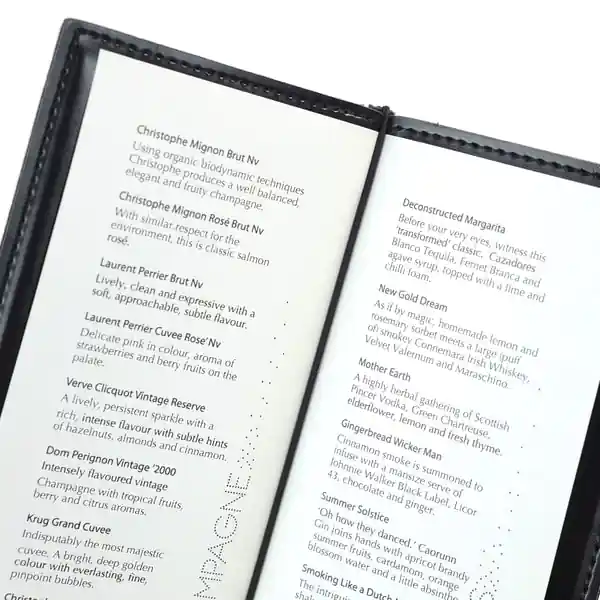 Christophe Mignon Brut Nv
Using organic biodynamic techniques
Christophe produces a well balanced,
elegant and fruity champagne.
Christophe Mignon Rosé Brut Nv
With similar respect for the
environment, this is classic salmon
rosé.
Laurent Perrier Brut Nv
Lively, clean and expressive with a
soft, approachable, subtle flavour.
Laurent Perrier Cuvee Rose'Nv
Delicate pink in colour, aroma of
strawberries and berry fruits on the
palate.
Verve Clicquot Vintage Reserve
A lively, persistent sparkle with a
rich, intense flavour with subtle hints
of hazelnuts, almonds and cinnamon.
Dom Perignon Vintage '2000
Intensely flavoured vintage
Champagne with tropical fruits,
berry and citrus aromas.
Krug Grand Cuvee
Indisputably the most majestic
cuvee. A bright, deep golden
colour with everlasting, fine,
pinpoint bubbles.
MPAGNE
Deconstructed Margarita
Before your very eyes, witness this
'transformed' classic. Cazadores
Blanco Tequila, Fernet Branca and
agave syrup, topped with a lime and
chilli foam.
New Gold Dream
As if by magic, homemade lemon and
rosemary sorbet meets a large (puff
of smokey Connemara Irish Whiskey,
Velvet Valernum and Maraschino.
Mother Earth
A highly herbal gathering of Scottish
Pincer Vodka, Green Chartreuse,
elderflower, lemon and fresh thyme.
Gingerbread Wicker Man
Cinnamon smoke is summoned to
infuse with a mansize serve of
Johnnie Walker Black Label, Licor
43, chocolate and ginger.
Summer Solstice
'Oh how they danced.' Caorunn
Gin joins hands with apricot brandy
summer fruits, cardamom, orange
blossom water and a little absinthe
Smoking Like a Dutch
The intriguing